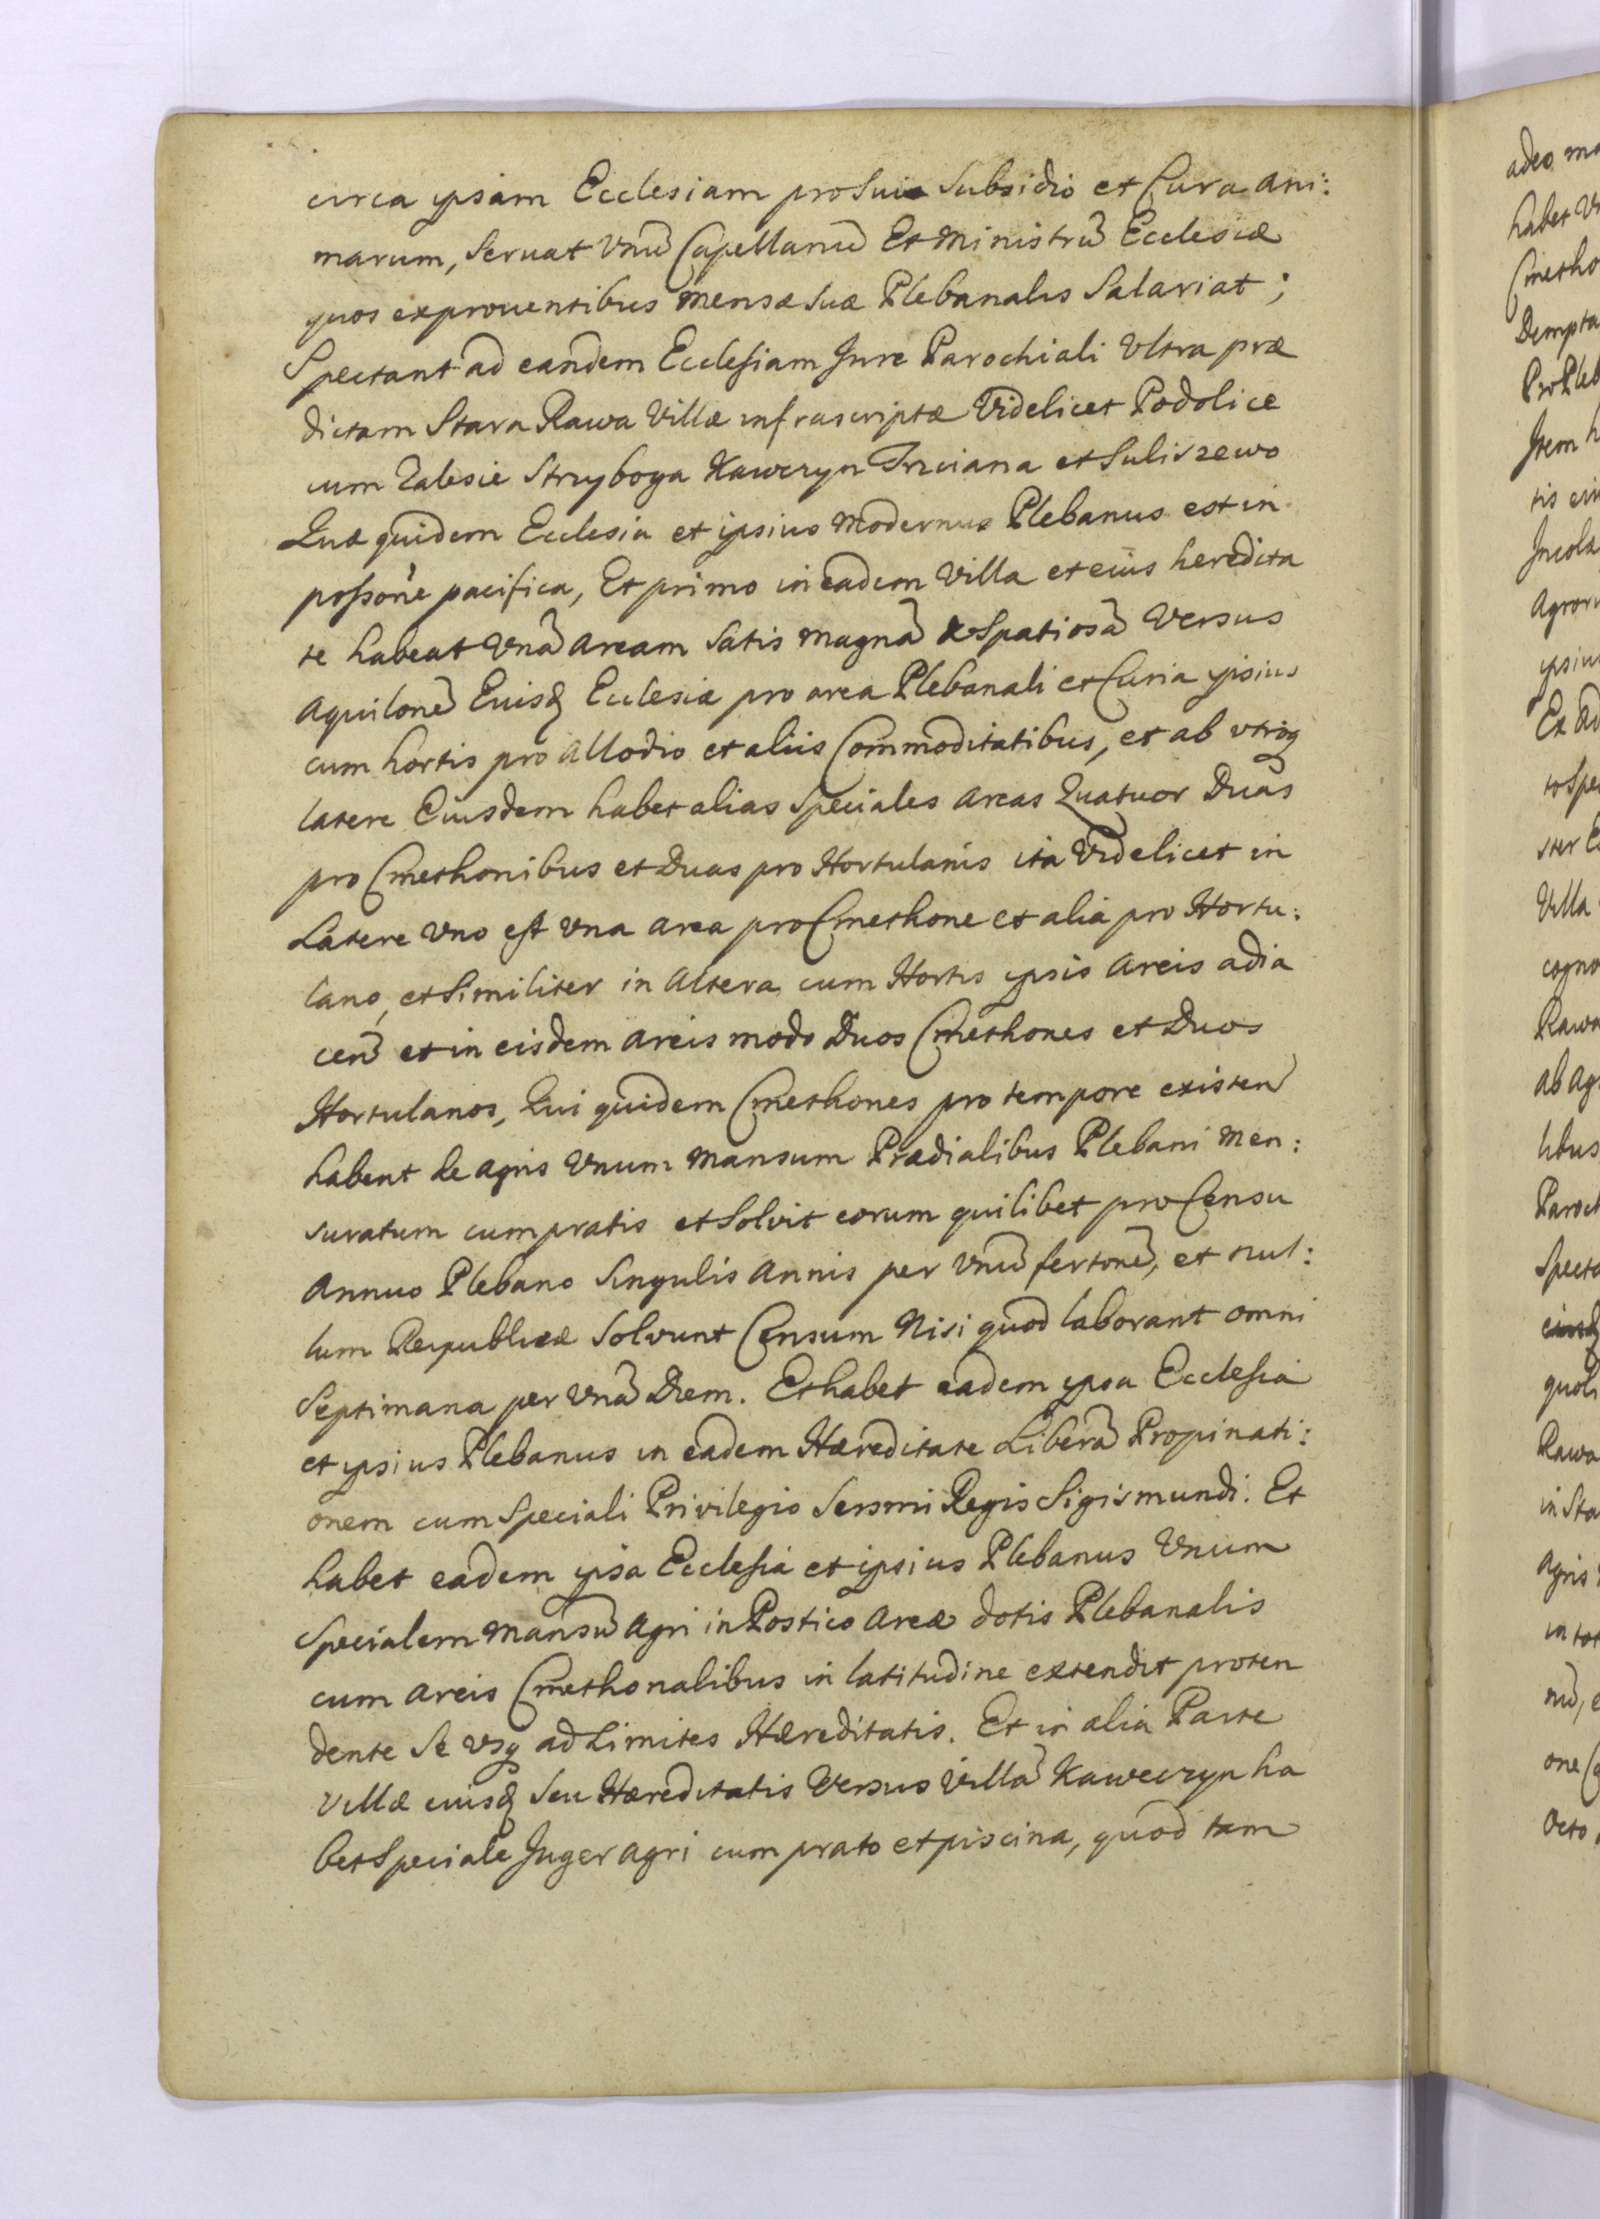 circa ipsam Ecclesiam pro Suie Subsidio et Cura Ani:
marum, Seruat Vnũ Capellanũ Et Ministrũ Ecclesiæ
quos exprouentibus Mensæ Suæ Plebanalis Salariat;
Spectant ad eandem Ecclesiam Jure Parochiali Vltra præ
dictam Stara Rawa Villæ infrascriptæ Videlicet Podolice
cum Zalesie Stryboga Kawczyn Trzciana et Suliszewo
Quæ quidem Ecclesia et ipsius Modernus Plebanus est in
possõne pacifica, Et primo in eadem Villa et eius heredita
te habeat Vnã Aream Satis magnã & Spatiosã Versus
Aquilonẽ Euisd Ecclesiæ pro area Plebanali et Curia ipsius
cum hortis pro Allodio et aliis Commoditatibus, et ab vtroq
latere Eiusdem habet alias Speciales Areas Quatuor Duas
pro Cmethonibus et Duas pro Hortulanis ita Videlicet in
Latere Vno est Vna Area pro Cmethone et alia pro Hortu:
lano, et Similiter in Altera cum Hortis ipsis Areis adia
cen̄ et in eisdem Areis modo Duos Cmethones et Duos
Hortulanos, Qui quidem Cmethones pro tempore existen̄
habent de Agris Vnum Mansum Prædialibus Plebani Men:
suratum cum pratis et Solvit eorum quilibet pro Censu
Annuo Plebano Singulis Annis per Vnũ fertonẽ, et nul:
lum Reipublicæ Solvunt Censum Nisi quod laborant omni
Septimana per Vnã Diem. Et habet eadem ipsa Ecclesia
et ipsius Plebanus in eadem Hæreditate Liberã Propinati:
onem cum Speciali Privilegio Sersmi Regis Sigismundi. Et
habet eadem ipsa Ecclesia et ipsius Plebanus Vnum
Specialem Mansũ Agri in Postico Areæ dotis Plebanalis
cum Areis Cmethonalibus in latitudine extendit proten
dente Se Vsq ad Limites Hæreditatis. Et in alia Parte
Villæ euisd Seu Hæreditatis Versus Villã Kaweczyn ha
bet Speciale Juger Agri cum prato et piscina, quod tam